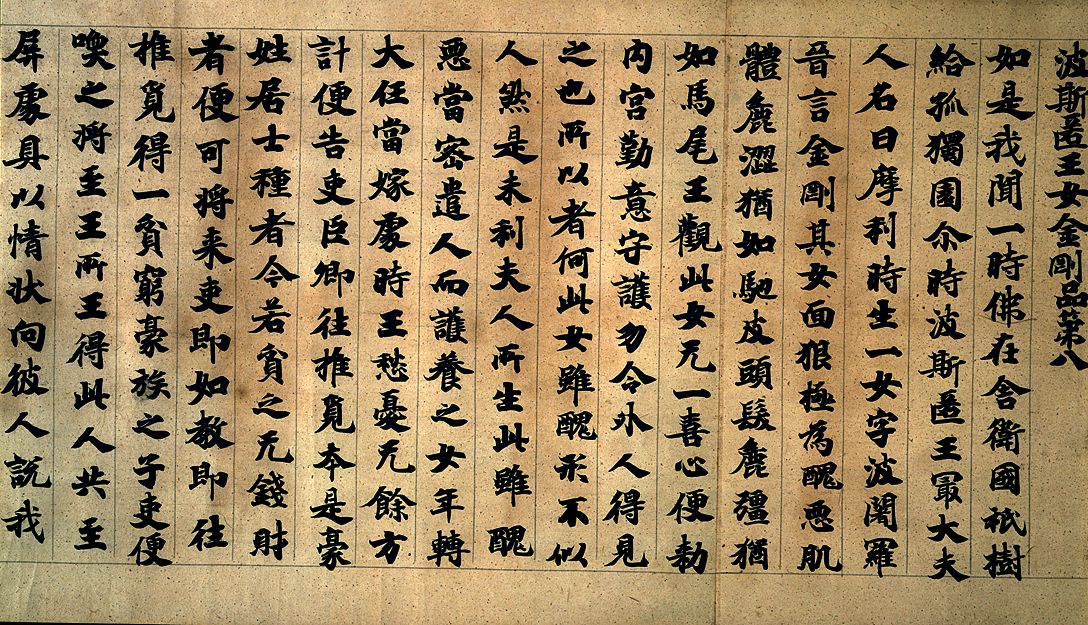 波斯匿王女金剛品第八
如是我聞一時佛在舍衛國祇樹
給孤獨園尒時波斯匿王冣大夫
人名曰摩利時生一女字波闍羅
晉言金剛其女面狠極為醜惡肌
體麁澀猶如馳皮頭髮麁彊猶
如馬尾王觀此女无一喜心便勑
内宮勤意守護勿令外人得見
之也所以者何此女雖醜形不似
人然是末利夫人所生此雖醜
惡當密遣人而護養之女年轉
大任當嫁處時王愁憂无餘方
計便告吏臣卿往推覓本是豪
姓居士種者今若貧乏无錢財
者便可將来吏即如教即往
推覓得一貧窮豪族之子吏便
喚之將至王所王得此人共至
屏處具以情狀向彼人說我